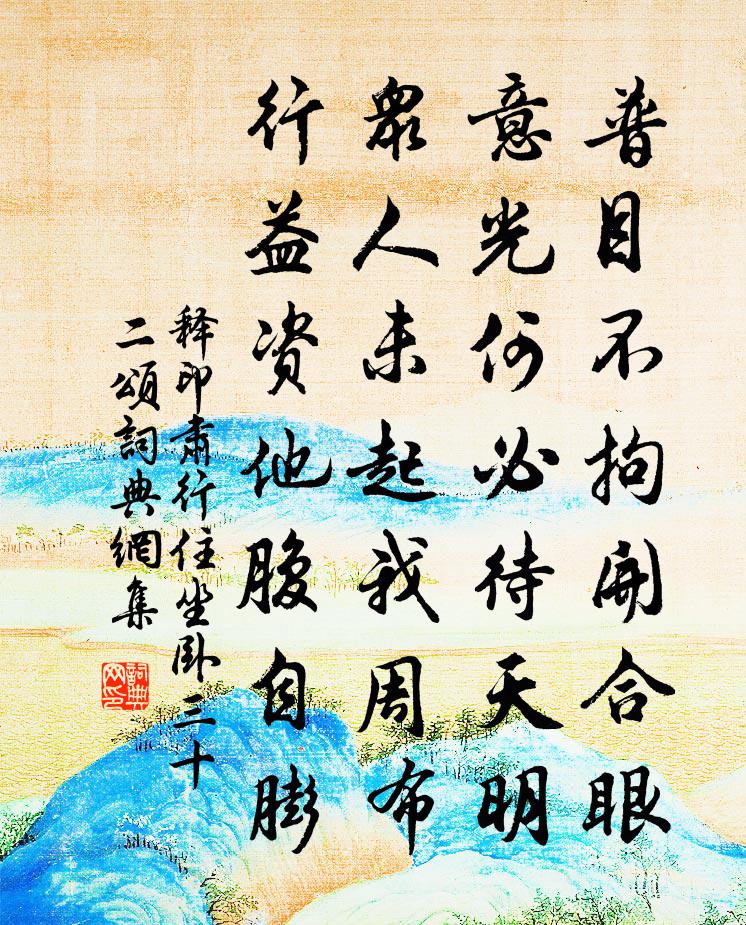 普目不拘開合眼
意光何必待天明
眾人未起我周布
行益资他腹自膨
释印肅行住坐卧三十
二頌詞典網集
詞典
网印